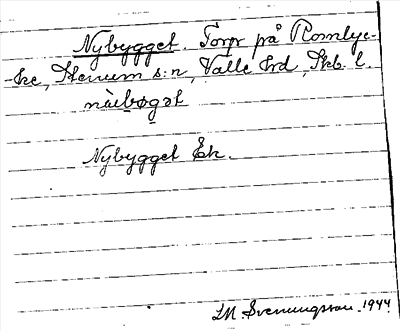 Nybygget. Torp på Romlyc-
-ke, Stenum s:n, Valle hd, Skb. l.
nỳbǫgət
Nybygget Ek.
I.M. Svenungsson. 1944.